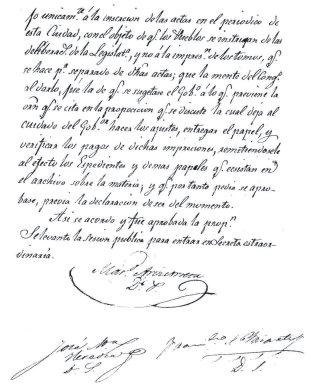 fo unicam.te á la insercion de las actas en el periodico de
esta Ciudad, con el objeto de q.e los Pueblos se instruyan de las
deliberac.s de la Legislat.a, y no á la impres.n de los tomos, q.e
se hace p.r separado de dhas actas; que la mente del Cong.o
al darlo, fue la de q.e se sugetase el Gob.o á lo q.e previene la
orn q.e se cita en la proposicion q.e se discute la cual deja al
cuidado del Gob.or hacer los ajustes, entregar el papel, y
verificar los pagos de dichas impresiones, remitiendosele
al efecto los Expedientes y demas papeles q.e ecsistan en
el archivo sobre la materia; y q.e por tanto pedia se apro-
base, previa la declaracion de ser del momento.
Asi se acordo y fue aprobada la prop.n
Se levantó la sesion publica para entrar en Secreta estraor-
dinaria.
D. P.
José M.a
D. S.
D. S.